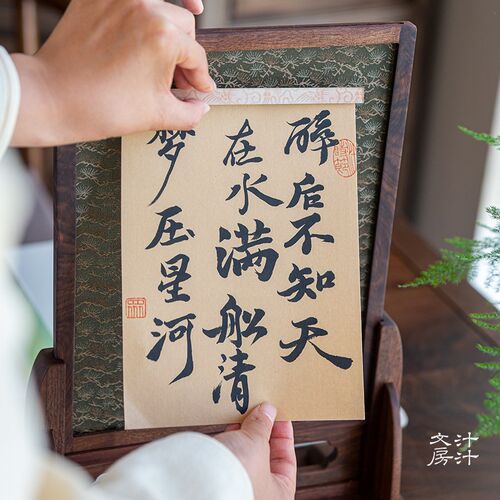 醉后不知天
在水满船清
梦压星河
汁汁
文房